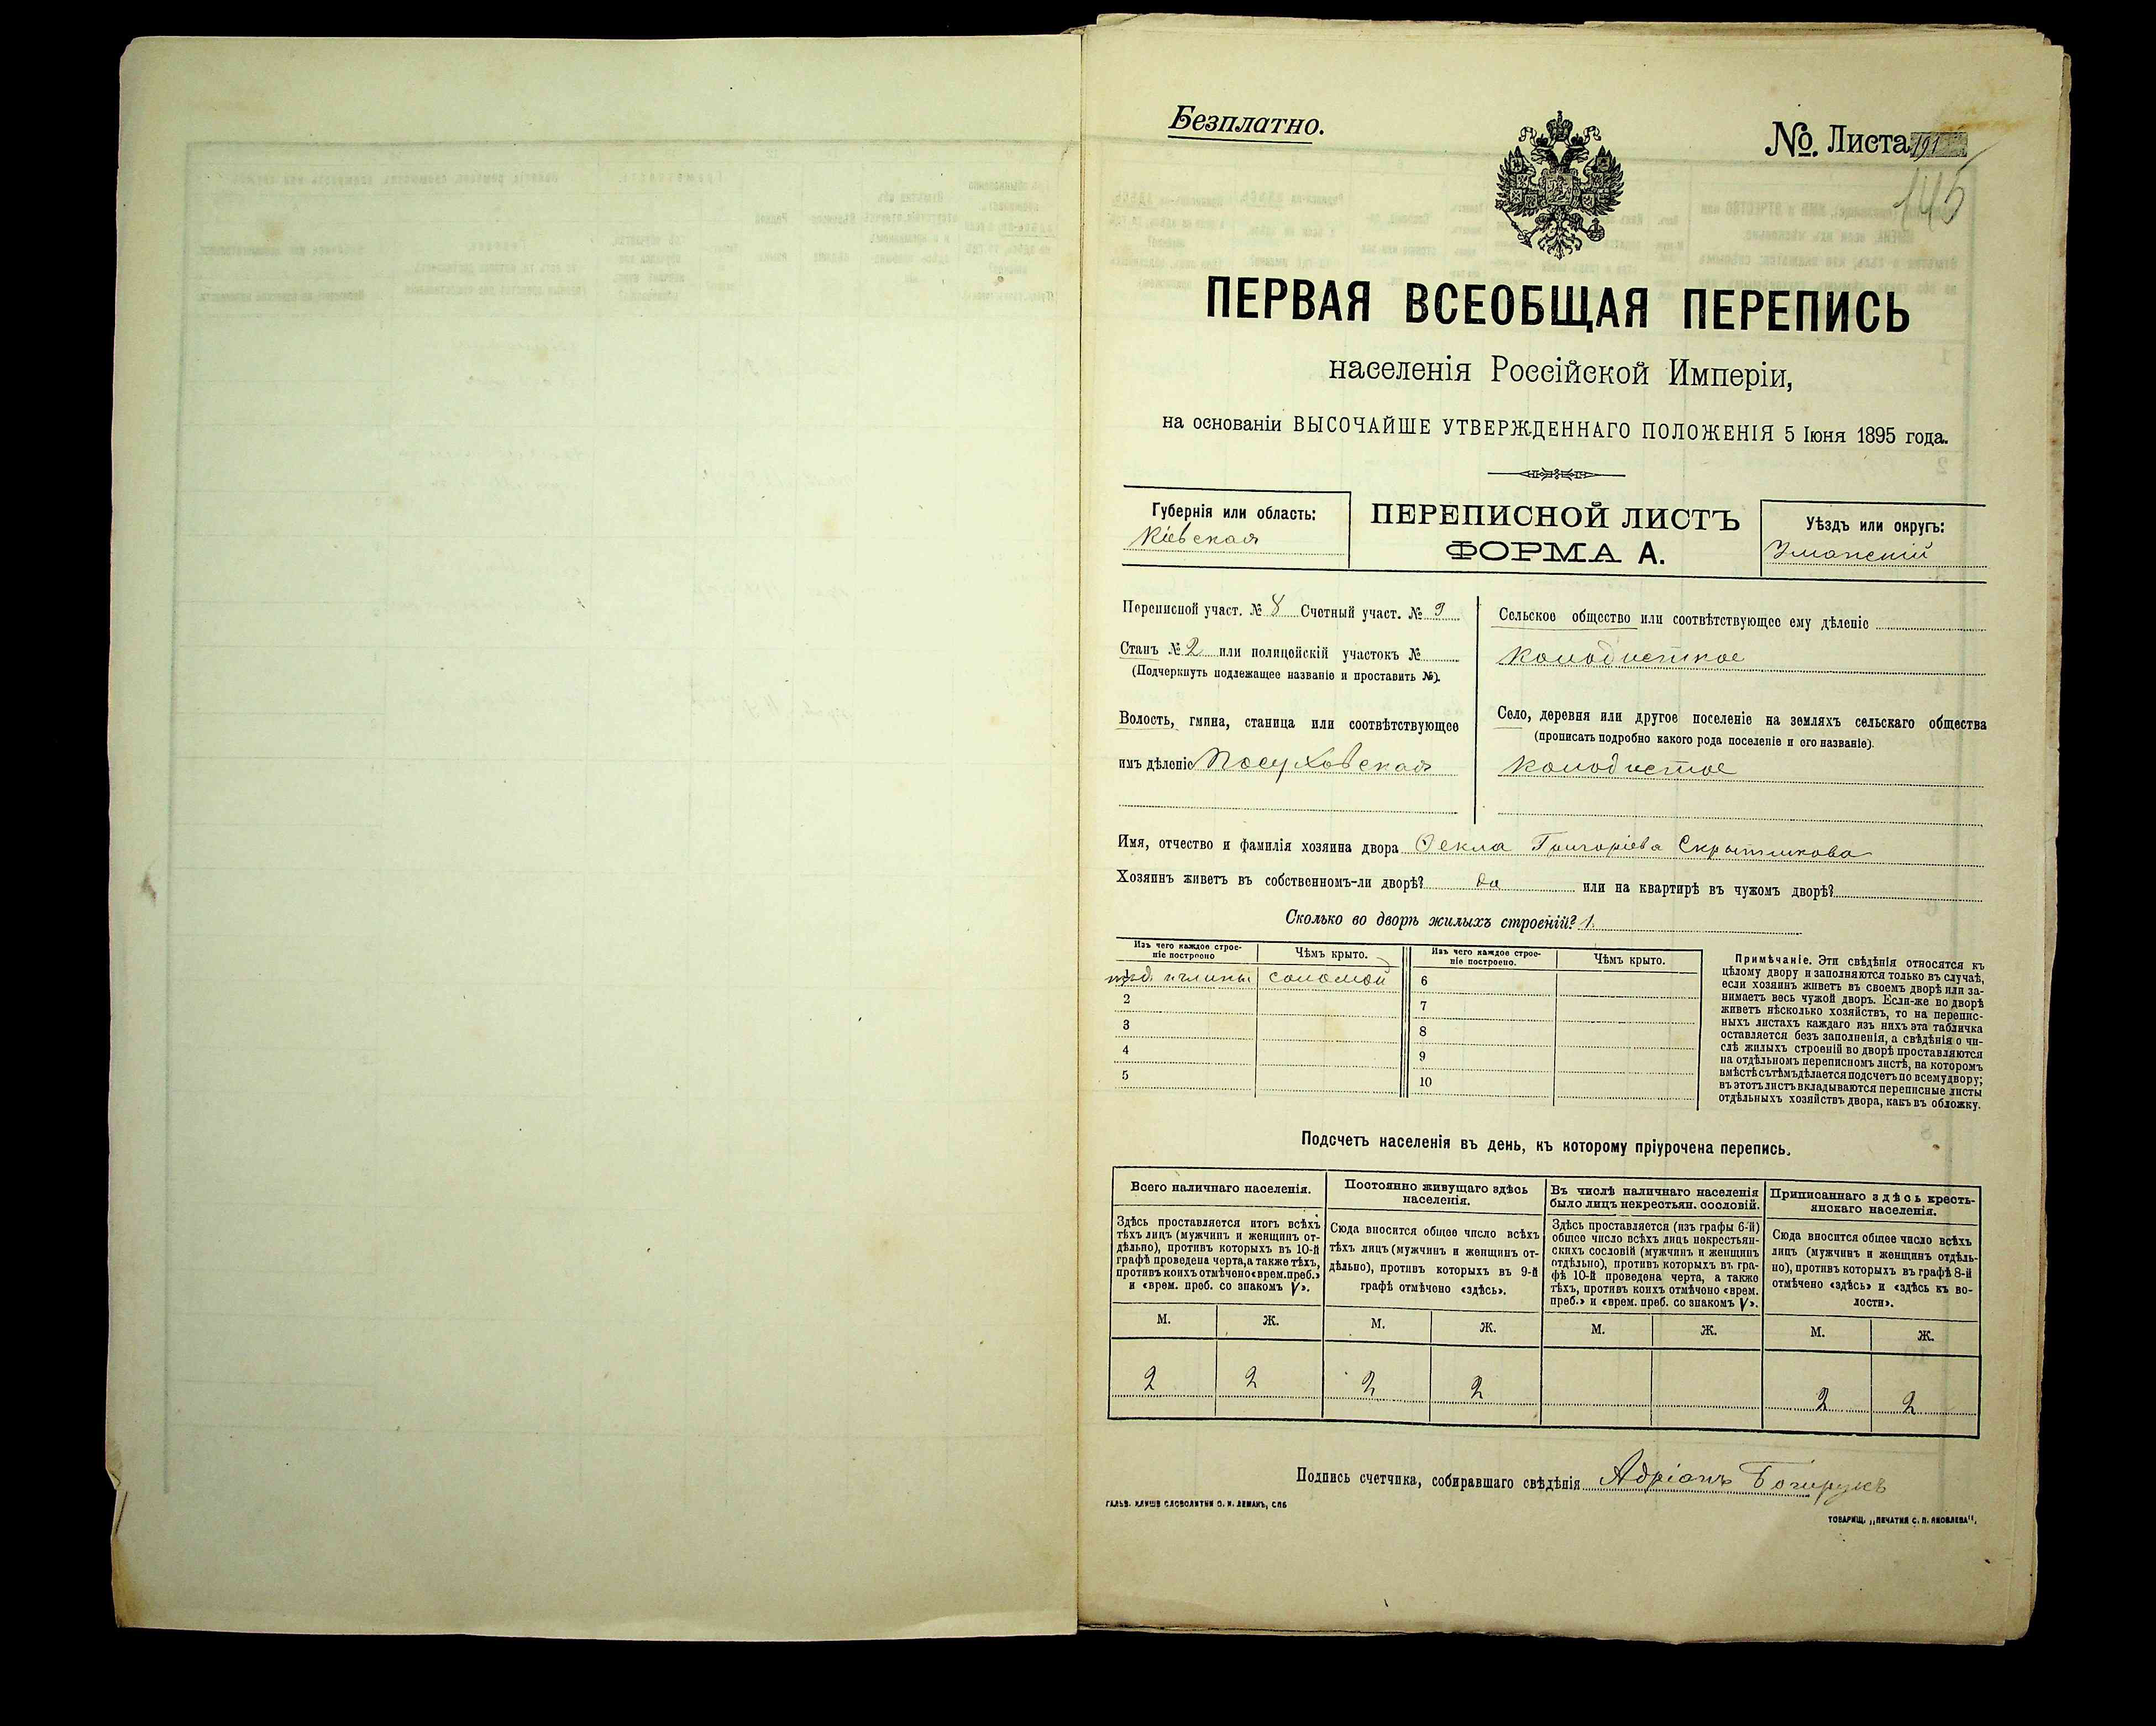 Безплатно.
№. Листа 191
145
ПЕРВАЯ ВСЕОБЩАЯ ПЕРЕПИСЬ
населенія Россійской Имперіи,
на основаніи ВЫСОЧАЙШЕ УТВЕРЖДЕННАГО ПОЛОЖЕНІЯ 5 Іюня 1895 года.
Губернія или область:
Кіевская
ПЕРЕПИСНОЙ ЛИСТЪ
ФОРМА А.
Уѣздъ или округъ:
Уманскій
Переписной участ. № 8 Счетный участ. № 9
Станъ № 2 или полицейскій участокъ №
(Подчеркнуть подлежащее названіе и проставить №).
Волость, гмина, станица или соотвѣтствующее
имъ дѣленіе Посуховская
Сельское общество или соотвѣтствующее ему дѣленіе
Колодисткое
Село, деревня или другое поселеніе на земляхъ сельскаго общества
(прописать подробно какого рода поселеніе и его названіе).
Колодистое
Имя, отчество и фамилія хозяина двора Ѳекла Григоріева
Хозяинъ живетъ въ собственномъ-ли дворѣ? да или на квартирѣ въ чужомъ дворѣ?
Сколько во дворѣ жилыхъ строеній? 1.
Изъ чего каждое строе-
ніе построено
Чѣмъ крыто.
Изъ чего каждое строе-
ніе построено.
Чѣмъ крыто.
глины соломой 6
2 7
3 8
4 9
5 10
Примѣчаніе. Эти свѣдѣнія относятся къ
цѣлому двору и заполняются только въ случаѣ,
если хозяинъ живетъ въ своемъ дворѣ или за-
нимаетъ весь чужой дворъ. Если-же во дворѣ
живетъ нѣсколько хозяйствъ, то на перепис-
ныхъ листахъ каждаго изъ нихъ эта табличка
оставляется безъ заполненія, а свѣдѣнія о чи-
слѣ жилыхъ строеній во дворѣ проставляются
на отдѣльномъ переписномъ листѣ, на которомъ
вмѣстѣ съ тѣмъ дѣлается подсчетъ по всему двору;
въ этотъ листъ вкладываются переписные листы
отдѣльныхъ хозяйствъ двора, какъ въ обложку.
Подсчетъ населенія въ день, къ которому пріурочена перепись.
Всего наличнаго населенія.
Здѣсь проставляется итогъ всѣхъ
тѣхъ лицъ (мужчинъ и женщинъ от-
дѣльно), противъ которыхъ въ 10-й
графѣ проведена черта, а также тѣхъ,
противъ коихъ отмѣчено «врем. преб.»
и «врем. преб. со знакомъ V».
Постоянно живущаго здѣсь
населенія.
Сюда вносится общее число всѣхъ
тѣхъ лицъ (мужчинъ и женщинъ от-
дѣльно), противъ которыхъ въ 9-й
графѣ отмѣчено «здѣсь».
Въ числѣ наличнаго населенія
было лицъ некрестьян. сословій.
Здѣсь проставляется (изъ графы 6-й)
общее число всѣхъ лицъ некрестьян-
скихъ сословій (мужчинъ и женщинъ
отдѣльно), противъ которыхъ въ гра-
фѣ 10-й проведена черта, а также
тѣхъ, противъ коихъ отмѣчено «врем.
преб.» и «врем. преб. со знакомъ V».
Приписаннаго здѣсь кресть-
янскаго населенія.
Сюда вносится общее число всѣхъ
лицъ (мужчинъ и женщинъ отдѣль-
но), противъ которыхъ въ графѣ 8-й
отмѣчено «здѣсь» и «здѣсь къ во-
лости».
М. Ж. М. Ж. М. Ж. М. Ж.
2 2 2 2 2 2
Подпись счетчика, собиравшаго свѣдѣнія Адріанъ
ГАЛЬВ. КЛИШЕ СЛОВОЛИТНИ О. И. ЛЕМАНЪ, СПБ
ТОВАРИЩ. „ПЕЧАТНЯ С. П. ЯКОВЛЕВА".